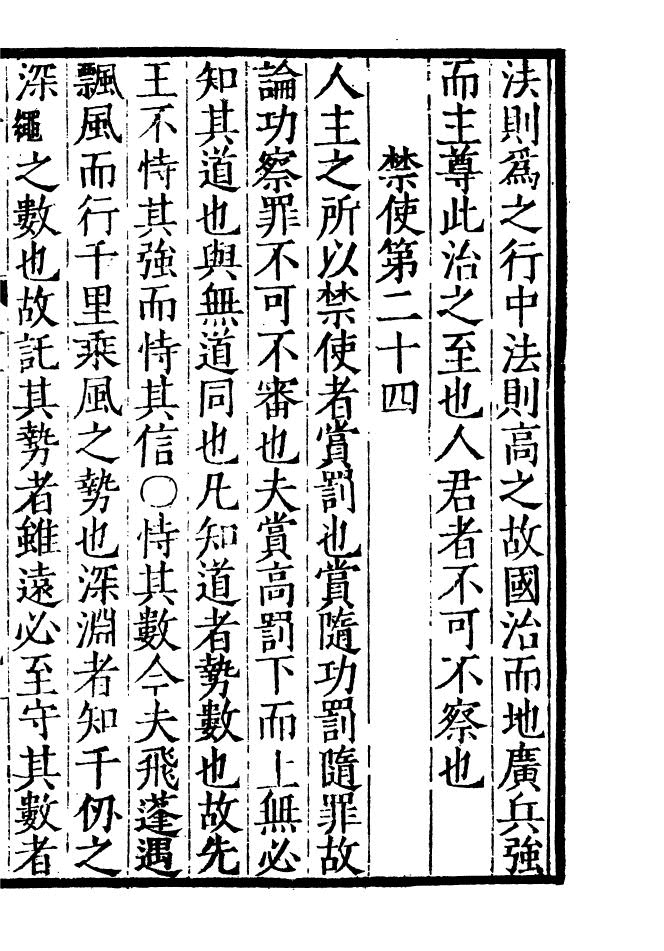 法則爲之行中法則高之故國治而地廣兵強
而主尊此治之至也人君者不可不察也
禁使第二十四
人主之所以禁使者賞罰也賞隨功罰隨罪故
論功察罪不可不審也夫賞高罰下而上無必
知其道也與無道同也凡知道者勢數也故先
王不恃其強而恃其信〇恃其數今夫飛蓬遇
飄風而行千里乗風之勢也深淵者知千仞之
深繩之數也故託其勢者雖遠必至守其數者